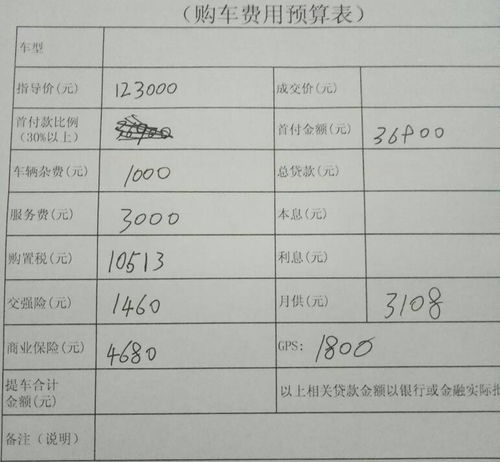 （购车费用预算表）
车型
指导价(元) 123000 成交价(元)
首付款比例
（30%以上） 首付金额(元) 36900
车辆杂费(元) 1000 总贷款(元)
服务费(元) 3000 本息(元)
购置税(元) 10513 利息(元)
交强险(元) 1460 月供(元) 3108
商业保险(元) 4680 GPS: 1800
提车合计
金额(元) 以上相关贷款金额以银行或金融实际批
备注（说明）